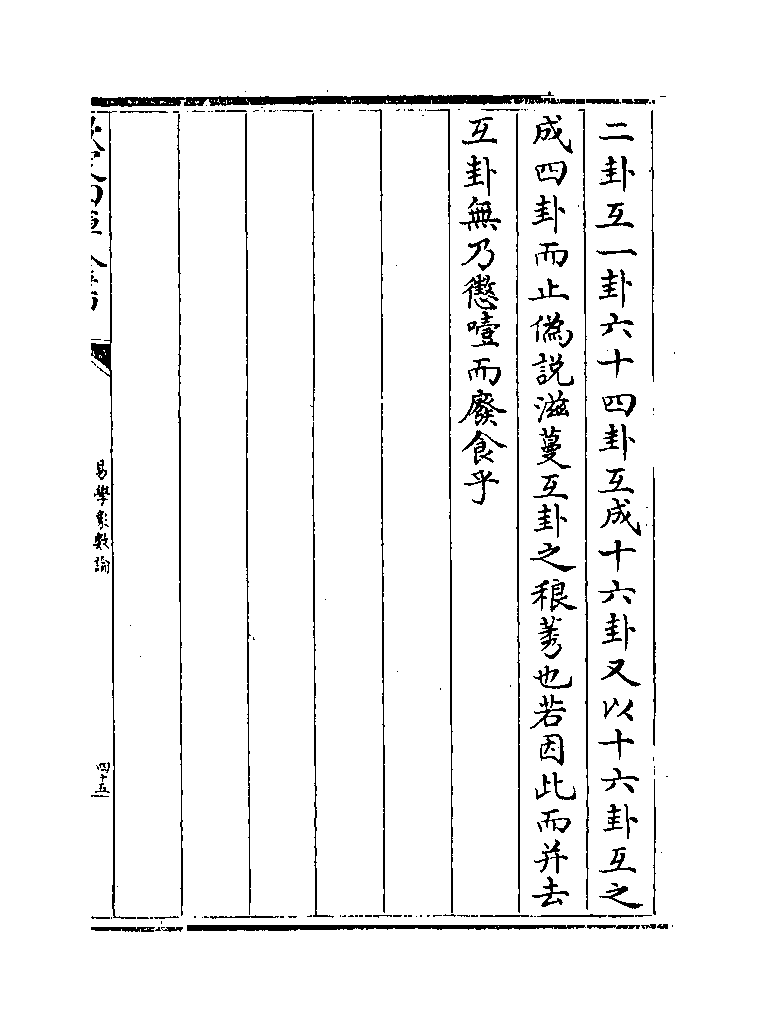 二卦互一卦六十四卦互成十六卦又以十六卦互之
成四卦而止偽說滋蔓互卦之稂莠也若因此而并去
互卦無乃懲噎而廢食乎
欽定四庫全書
易學象數論
四十五